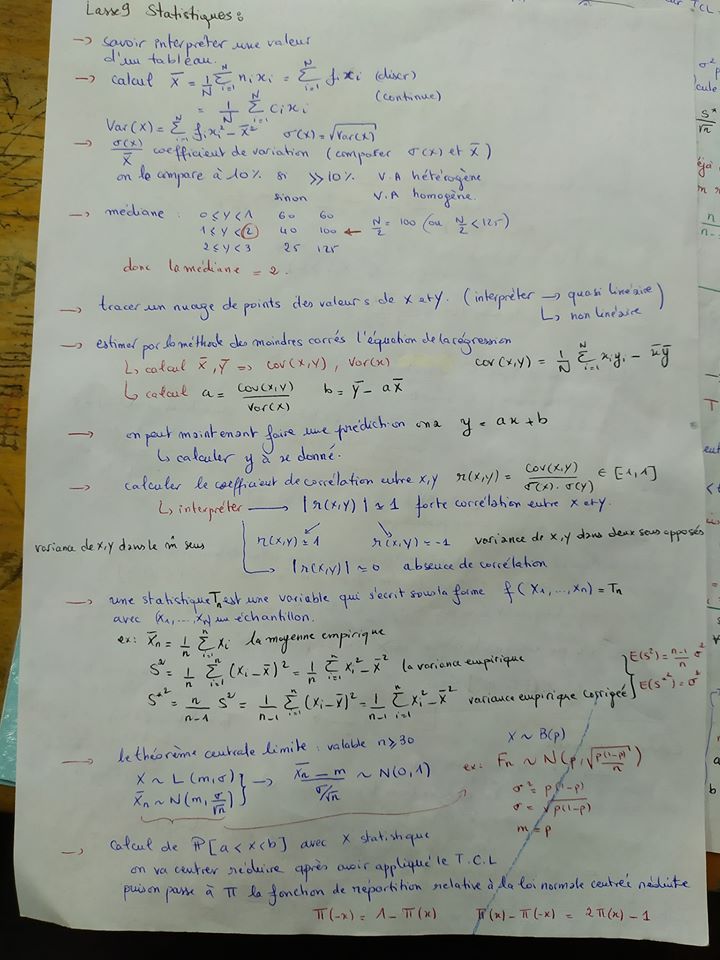 Lasse9 Statistiques :
→ savoir interpréter une valeur
d'un tableau.
→ calcul X̄ = 1/N Σ_{i=1}^{N} n_i x_i = Σ_{i=1}^{N} f_i x_i (discr)
= 1/N Σ_{i=1}^{N} c_i x_i (continue)
Var(X) = Σ_{i=1}^{N} f_i x_i² - X̄² σ(x) = √Var(x)
→ σ(x)/X̄ coefficient de variation (comparer σ(x) et X̄)
on le compare à 10% si >> 10% V.A hétérogène
sinon V.A homogène.
→ médiane : 0 ≤ y < 1 60 60
1 ≤ y < 2 40 100 ← N/2 = 100 (ou N/2 < 125)
2 ≤ y < 3 25 125
donc la médiane = 2.
→ tracer un nuage de points des valeurs de X et Y. (interpréter → quasi linéaire
↳ non linéaire)
→ estimer par la méthode des moindres carrés l'équation de la régression
↳ calcul X̄, Ȳ => cov(x,y), Var(x) cov(x,y) = 1/N Σ_{i=1}^{N} x_i y_i - x̄ȳ
↳ calcul a = Cov(x,y)/Var(x) b = Ȳ - aX̄
→ on peut maintenant faire une prédiction y = ax + b
↳ calculer y à x donné.
→ calculer le coefficient de corrélation entre x,y r(x,y) = Cov(x,y)/σ(x).σ(y) ∈ [-1,1]
↳ interpréter → |r(x,y)| ≃ 1 forte corrélation entre x et y.
variance de x,y dans le m̂ sens r(x,y) ≃ 1 r(x,y) ≃ -1 variance de x,y dans deux sens opposés
→ |r(x,y)| ≃ 0 absence de corrélation
→ une statistique Tn est une variable qui s'écrit sous la forme f(X1,...,Xn) = Tn
avec (X1,...,Xn) un échantillon.
ex: X̄n = 1/n Σ_{i=1}^{n} Xi la moyenne empirique
S² = 1/n Σ_{i=1}^{n} (Xi - X̄)² = 1/n Σ_{i=1}^{n} Xi² - X̄² la variance empirique E(S²) = n-1/n σ²
S*² = n/n-1 S² = 1/n-1 Σ_{i=1}^{n} (Xi - X̄)² = 1/n-1 Σ_{i=1}^{n} Xi² - X̄² variance empirique corrigée E(S*²) = σ²
→ le théorème centrale limite : valable n ≥ 30 X ~ B(p)
X ~ L(m,σ)
X̄n ~ N(m, σ/√n) } → X̄n - m / σ/√n ~ N(0,1) ex: Fn ~ N(p, √p(1-p)/n)
σ² = p(1-p)
σ = √p(1-p)
m = p
→ calcul de P[a < x < b] avec X statistique
on va centrer réduire après avoir appliqué le T.C.L
puis on passe à Π la fonction de répartition relative à la loi normale centrée réduite
Π(-x) = 1 - Π(x) Π(x) - Π(-x) = 2Π(x) - 1